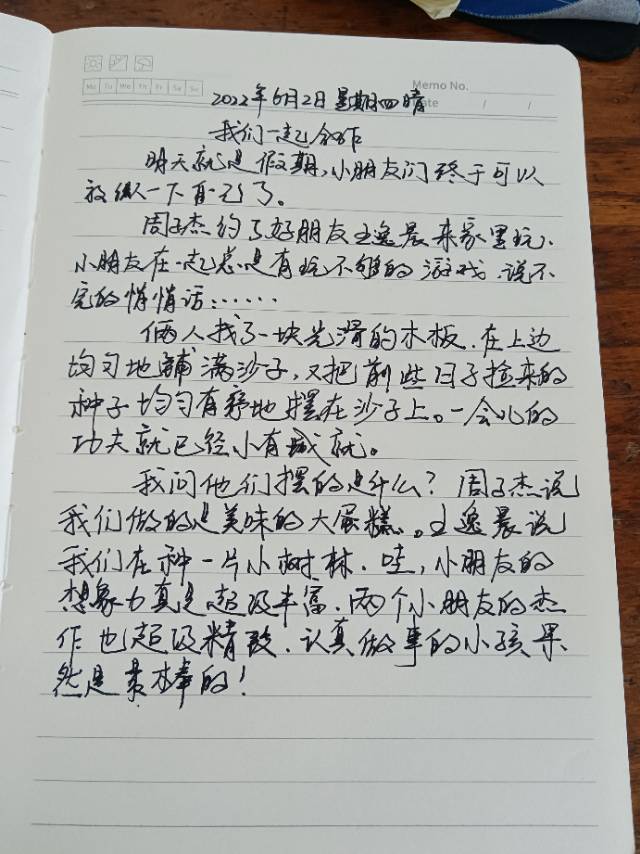 Memo No.
Mo Tu We Th Fr Sa Su
Date / /
2022年6月2日 星期四晴
我们一起合作
明天就是假期,小朋友们终于可以
放纵一下自己了。
周子杰约了好朋友王逸晨来家里玩、
小朋友在一起总是有玩不够的游戏、说不
完的悄悄话:······
俩人找了一块光滑的木板、在上边
均匀地铺满沙子,又把前些日子捡来的
种子均匀有序地摆在沙子上。一会儿的
功夫就已经小有成就。
我问他们摆的是什么?周子杰说
我们做的是美味的大蛋糕。王逸晨说
我们在种一片小树林、哇,小朋友的
想象力真是超级丰富、两个小朋友的杰
作也超级精致、认真做事的小孩果
然是最棒的!